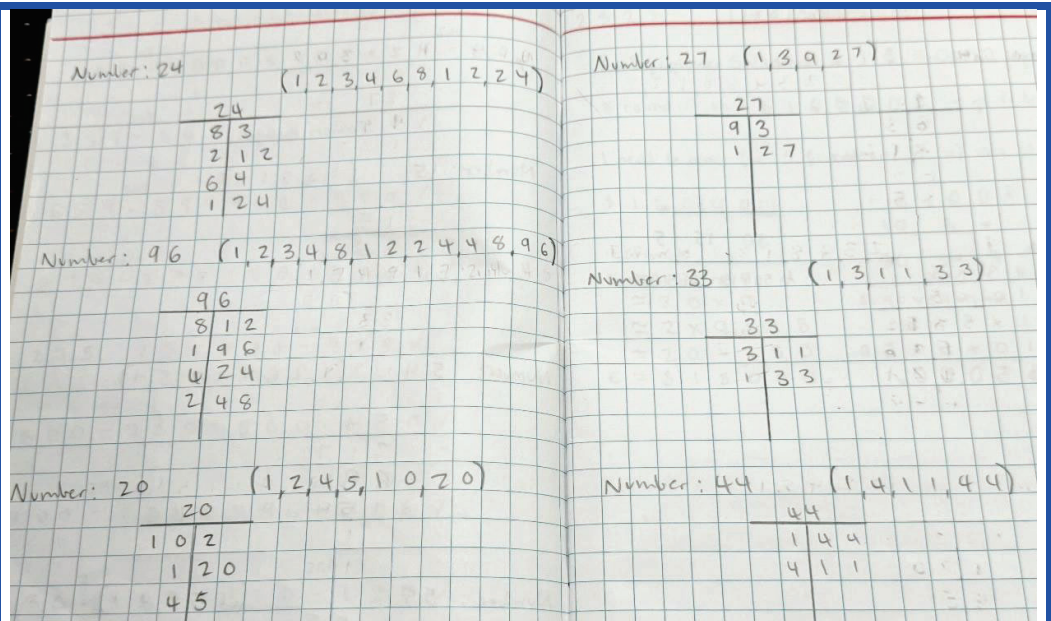 Number: 24 (1,2,3,4,6,8,12,24)
24
8 3
2 12
6 4
1 24
Number: 96 (1,2,3,4,8,12,24,48,96)
96
8 12
1 96
4 24
2 48
Number: 20 (1,2,4,5,10,20)
20
10 2
1 20
4 5
Number: 27 (1,3,9,27)
27
9 3
1 27
Number: 33 (1,3,11,33)
33
3 11
1 33
Number: 44 (1,4,11,44)
44
1 44
4 11